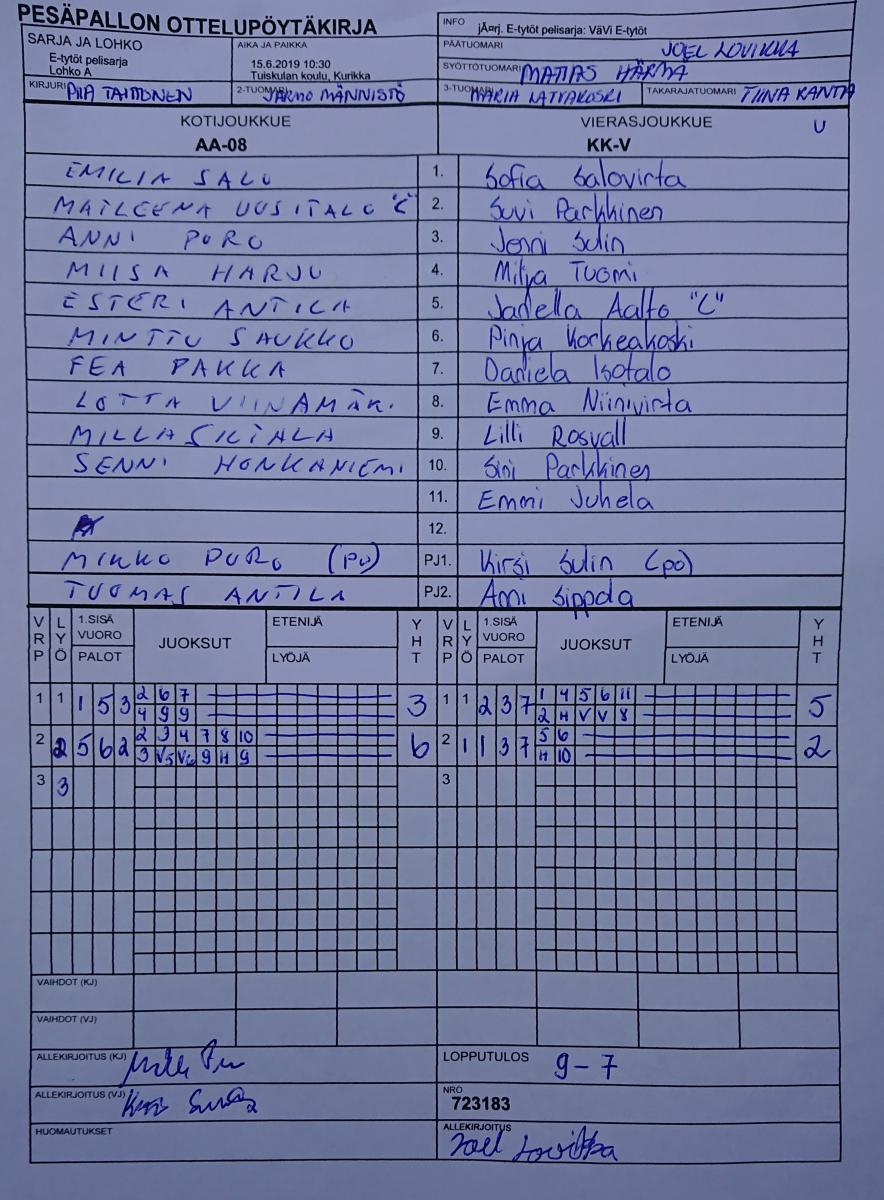 PESÄPALLON OTTELUPÖYTÄKIRJA
INFO jÃ¤rj. E-tytöt pelisarja: VäVi E-tytöt
SARJA JA LOHKO
E-tytöt pelisarja
Lohko A
AIKA JA PAIKKA
15.6.2019 10:30
Tuiskulan koulu, Kurikka
PÄÄTUOMARI JOEL LOVIKKA
SYÖTTÖTUOMARI MATIAS HÄRMÄ
KIRJURI PIIA TAITTONEN
2-TUOMARI JARMO MÄNNISTÖ
3-TUOMARI MARIA LATVAKOSKI
TAKARAJATUOMARI TIINA RANTA
KOTIJOUKKUE VIERASJOUKKUE U
AA-08 KK-V
EMILIA SALO 1. Sofia Salovirta
MAILEENA UUSITALO "C" 2. Suvi Parkkinen
ANNI PURO 3. Jenni Sulin
MIISA HARJU 4. Milja Tuomi
ESTERI ANTILA 5. Janella Aalto "C"
MINTTU SAUKKO 6. Pinja Korkeakoski
FEA PAKKA 7. Daniela Isotalo
LOTTA VIINAMÄKI 8. Emma Niinivirta
MILLA SILTALA 9. Lilli Rosvall
SENNI HONKANIEMI 10. Sini Parkkinen
11. Emmi Juhela
12.
MIKKO PURO (PU) PJ1. Kirsi Sulin (po)
TUOMAS ANTILA PJ2. Anni Sippola
VRP LYÖ 1.SISÄ VUORO PALOT JUOKSUT ETENIJÄ LYÖJÄ YHT VRP LYÖ 1.SISÄ VUORO PALOT JUOKSUT ETENIJÄ LYÖJÄ YHT
1 1 1 5 3 2 6 7 3 1 1 2 3 7 1 4 5 6 11 5
4 9 9 2 H V V 8
2 2 5 6 2 2 3 4 7 8 10 6 2 1 1 3 7 5 6 2
3 V5 V6 9 H 9 H 10
3 3 3
VAIHDOT (KJ)
VAIHDOT (VJ)
ALLEKIRJOITUS (KJ)
LOPPUTULOS 9-7
ALLEKIRJOITUS (VJ)
NRO
723183
HUOMAUTUKSET
ALLEKIRJOITUS
Joel Lovikka